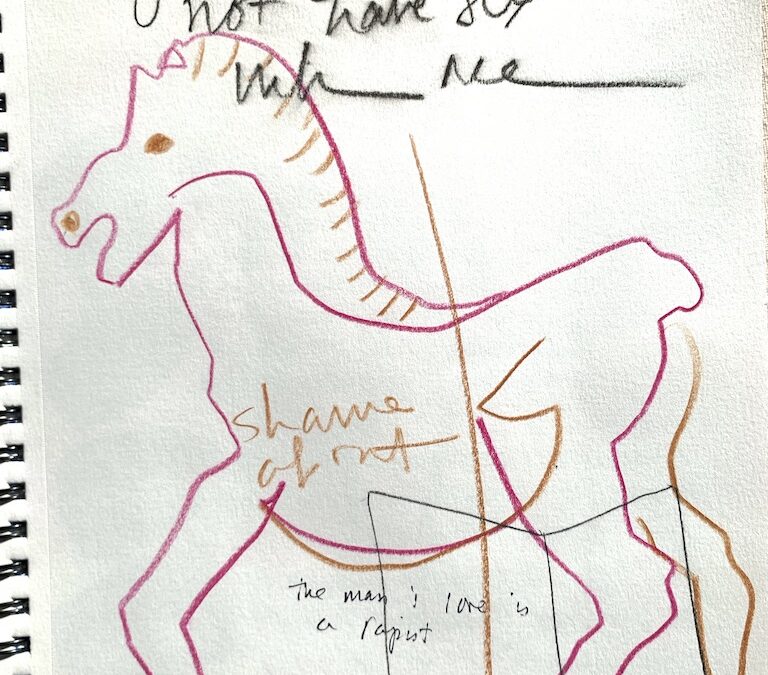 not have sex
with me
shame
about
the man i love is
a rapist